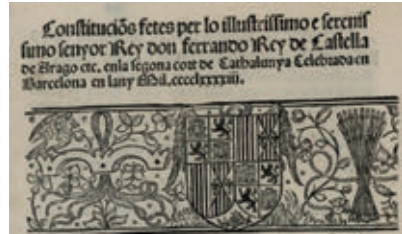 Constituciõs fetes per lo illustrissimo e serenis
simo senyor Rey don ferrando Rey de Castella
de Arago etc. enla segona cort de Cathalunya Celebrada en
Barcelona en lany Mil.cccclxxxxiii.